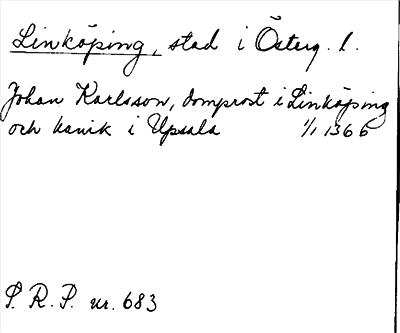 Linköping, stad i Österg. l.
Johan Karlsson, domprost i Linköping
och kanik i Upsala 1/1 1366
S. R. P. nr. 683